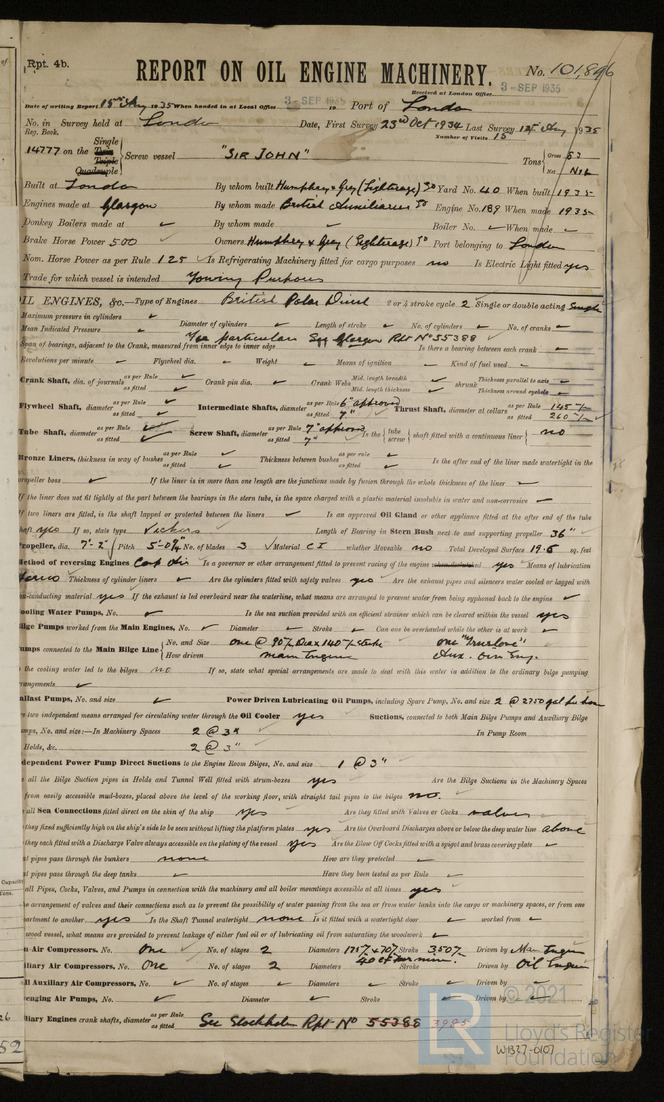 Rpt. 4b.
REPORT ON OIL ENGINE MACHINERY.
No. 101,896
Received at London Office
3 - SEP 1935
Date of writing Report 15th Aug 1935 When handed in at Local Office 3 - SEP 1935 Port of London
No. in Survey held at London Date, First Survey 23rd Oct 1934 Last Survey 12th Aug 1935
Reg. Book. Number of Visits 15
14777 on the Single Twin Triple Quadruple Screw vessel "SIR JOHN" Tons Gross 53 Net Nil
Built at London By whom built Humphrey & Grey (Lighterage) Yard No. 40 When built 1935
Engines made at Glasgow By whom made British Auxiliaries Engine No. 189 When made 1935
Donkey Boilers made at By whom made Boiler No. When made
Brake Horse Power 500 Owners Humphrey & Grey (Lighterage) Port belonging to London
Nom. Horse Power as per Rule 125 Is Refrigerating Machinery fitted for cargo purposes no Is Electric Light fitted yes
Trade for which vessel is intended Towing Purposes
OIL ENGINES, &c.—Type of Engines British Polar Diesel 2 or 4 stroke cycle 2 Single or double acting Single
Maximum pressure in cylinders Diameter of cylinders Length of stroke No. of cylinders No. of cranks
Mean Indicated Pressure For particulars See Glasgow Rpt No 55388
Span of bearings, adjacent to the Crank, measured from inner edge to inner edge Is there a bearing between each crank
Revolutions per minute Flywheel dia. Weight Means of ignition Kind of fuel used
Crank Shaft, dia. of journals as per Rule as fitted Crank pin dia. Crank Webs Mid. length breadth Mid. length thickness shrunk Thickness parallel to axis Thickness around eyehole
Flywheel Shaft, diameter as per Rule as fitted Intermediate Shafts, diameter as per Rule 6" approved as fitted 7" Thrust Shaft, diameter at collars as per Rule 145 as fitted 260
Tube Shaft, diameter as per Rule as fitted Screw Shaft, diameter as per Rule 7" approved as fitted 7" Is the tube screw shaft fitted with a continuous liner no
Bronze Liners, thickness in way of bushes as per Rule as fitted Thickness between bushes as per rule as fitted Is the after end of the liner made watertight in the
propeller boss If the liner is in more than one length are the junctions made by fusion through the whole thickness of the liner
If the liner does not fit tightly at the part between the bearings in the stern tube, is the space charged with a plastic material insoluble in water and non-corrosive
If two liners are fitted, is the shaft lapped or protected between the liners Is an approved Oil Gland or other appliance fitted at the after end of the tube
shaft yes If so, state type Vickers Length of Bearing in Stern Bush next to and supporting propeller 36"
Propeller, dia. 7'-2" Pitch 5'-0 No. of blades 3 Material C I whether Moveable no Total Developed Surface 19.6 sq. feet
Method of reversing Engines Comp Air Is a governor or other arrangement fitted to prevent racing of the engine when declutched yes Means of lubrication
Thickness of cylinder liners Are the cylinders fitted with safety valves yes Are the exhaust pipes and silencers water cooled or lagged with
non-conducting material yes If the exhaust is led overboard near the waterline, what means are arranged to prevent water from being syphoned back to the engine
Cooling Water Pumps, No. Is the sea suction provided with an efficient strainer which can be cleared within the vessel yes
Bilge Pumps worked from the Main Engines, No. Diameter Stroke Can one be overhauled while the other is at work
Pumps connected to the Main Bilge Line No. and Size one @ 90 Dia x 140 Stroke one "Truslove"
How driven Main Engine Aux. Oil Eng.
Is the cooling water led to the bilges no If so, state what special arrangements are made to deal with this water in addition to the ordinary bilge pumping
arrangements
Ballast Pumps, No. and size Power Driven Lubricating Oil Pumps, including Spare Pump, No. and size 2 @ 2750 gal per hour
Are two independent means arranged for circulating water through the Oil Cooler yes Suctions, connected to both Main Bilge Pumps and Auxiliary Bilge
Pumps, No. and size:—In Machinery Spaces 2 @ 3" In Pump Room
Holds, &c. 2 @ 3"
Independent Power Pump Direct Suctions to the Engine Room Bilges, No. and size 1 @ 3"
Are all the Bilge Suction pipes in Holds and Tunnel Well fitted with strum-boxes yes Are the Bilge Suctions in the Machinery Spaces
from easily accessible mud-boxes, placed above the level of the working floor, with straight tail pipes to the bilges no.
Are all Sea Connections fitted direct on the skin of the ship yes Are they fitted with Valves or Cocks valves
Are they fixed sufficiently high on the ship's side to be seen without lifting the platform plates yes Are the Overboard Discharges above or below the deep water line above
Are they each fitted with a Discharge Valve always accessible on the plating of the vessel yes Are the Blow Off Cocks fitted with a spigot and brass covering plate
What pipes pass through the bunkers none How are they protected
What pipes pass through the deep tanks Have they been tested as per Rule
Are all Pipes, Cocks, Valves, and Pumps in connection with the machinery and all boiler mountings accessible at all times yes
Is the arrangement of valves and their connections such as to prevent the possibility of water passing from the sea or from water tanks into the cargo or machinery spaces, or from one
compartment to another yes Is the Shaft Tunnel watertight none Is it fitted with a watertight door worked from
If a wood vessel, what means are provided to prevent leakage of either fuel oil or of lubricating oil from saturating the woodwork
Main Air Compressors, No. One No. of stages 2 Diameters Stroke Driven by Main Engine
Auxiliary Air Compressors, No. One No. of stages 2 Diameters 40 cf per min. Stroke Driven by Oil Engine
Small Auxiliary Air Compressors, No. No. of stages Diameters Stroke Driven by
Scavenging Air Pumps, No. Diameter Stroke Driven by
Auxiliary Engines crank shafts, diameter as per Rule as fitted See Stockholm Rpt No 55388 3985
© 2021
Lloyd's Register
Foundation
LR
W1327-0107